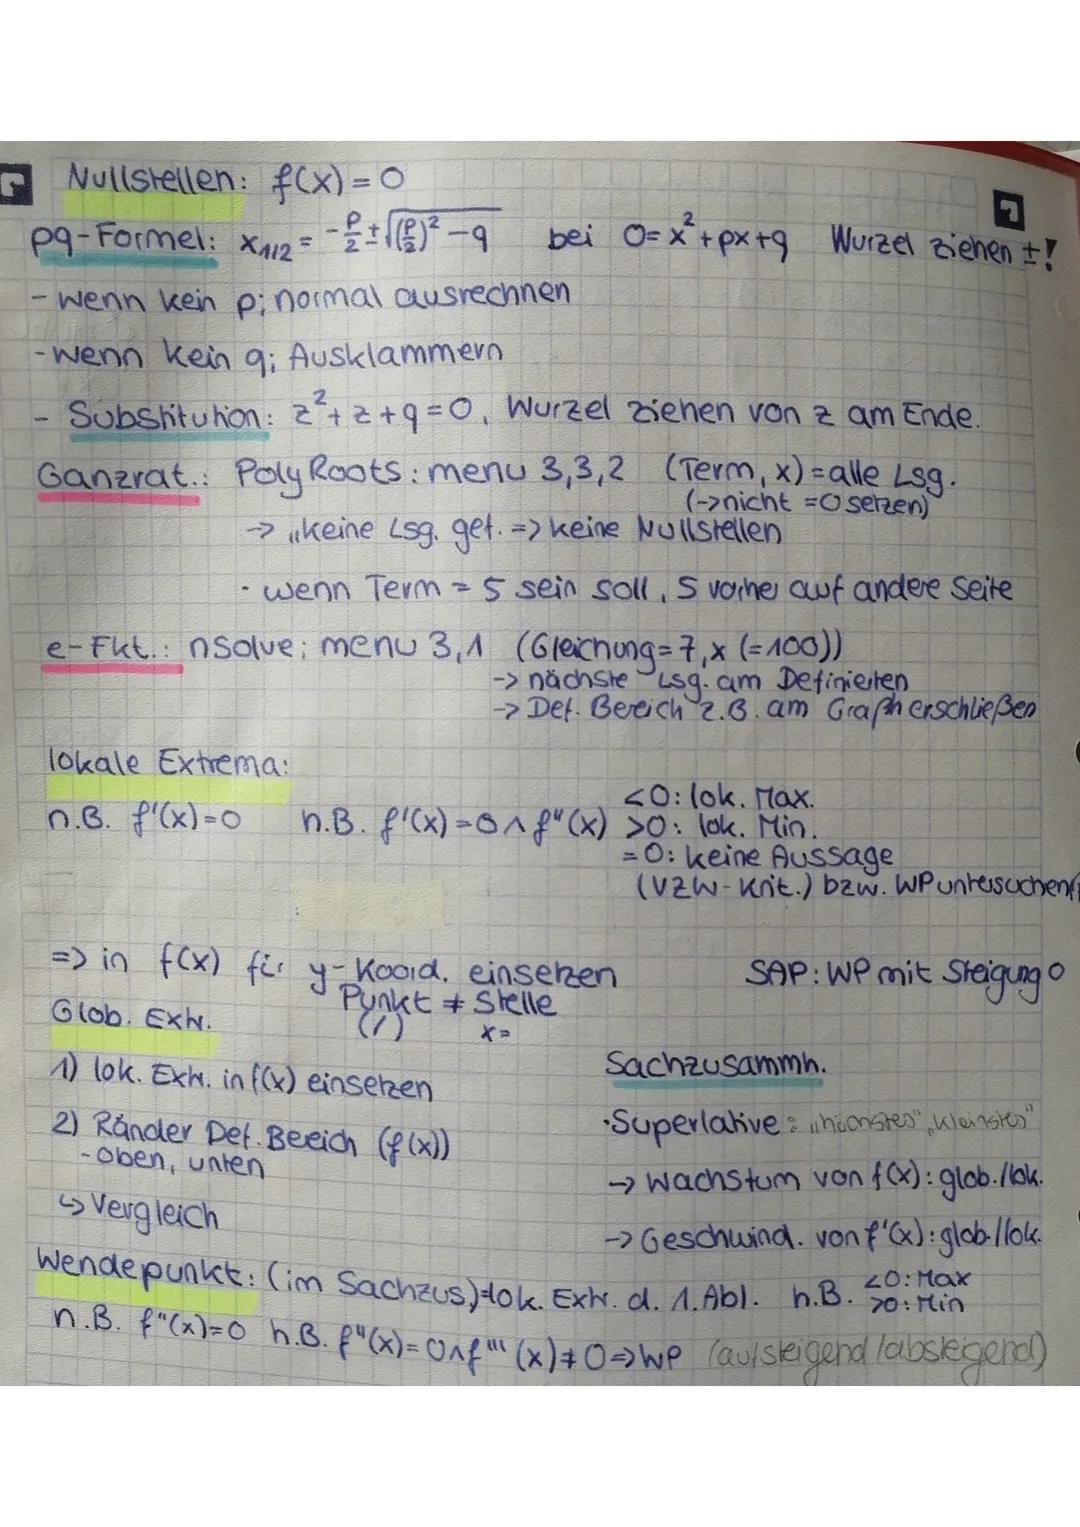 Nullstellen: f(x) = 0
pq-Formel: x1/2 = -p/2 ± √((p/2)² - q) bei 0 = x² + px + q Wurzel ziehen ±!
- wenn kein p; normal ausrechnen
- wenn kein q; Ausklammern
- Substitution: z² + z + q = 0, Wurzel ziehen von z am Ende.
Ganzrat.: PolyRoots: menu 3,3,2 (Term, x) = alle Lsg.
(-> nicht = 0 setzen)
-> „keine Lsg. gef. => keine Nullstellen
· wenn Term = 5 sein soll, 5 vorher auf andere Seite
e-Fkt.: nsolve; menu 3,1 (Gleichung = 7, x (=100))
-> nächste Lsg. am Definierten
-> Def. Bereich z.B. am Graph erschließen
lokale Extrema:
n.B. f'(x) = 0 h.B. f'(x) = 0 ∧ f"(x) <0: lok. Max.
>0: lok. Min.
= 0: keine Aussage
(VZW-Krit.) bzw. WP untersuchen
=> in f(x) für y-Koord. einsetzen SAP: WP mit Steigung 0
Punkt ≠ Stelle
(/) x=
Glob. Extr.
1) lok. Extr. in f(x) einsetzen
2) Ränder Def. Bereich (f(x))
- oben, unten
↳ Vergleich
Sachzusammh.
· Superlative: „höchstes", „kleinstes"
-> Wachstum von f(x): glob./lok.
-> Geschwind. von f'(x): glob./lok.
Wendepunkt: (im Sachzus.) = lok. Extr. d. 1. Abl. h.B. <0: Max
>0: Min
n.B. f"(x) = 0 h.B. f"(x) = 0 ∧ f"'(x) ≠ 0 => WP (aufsteigend/absteigend)